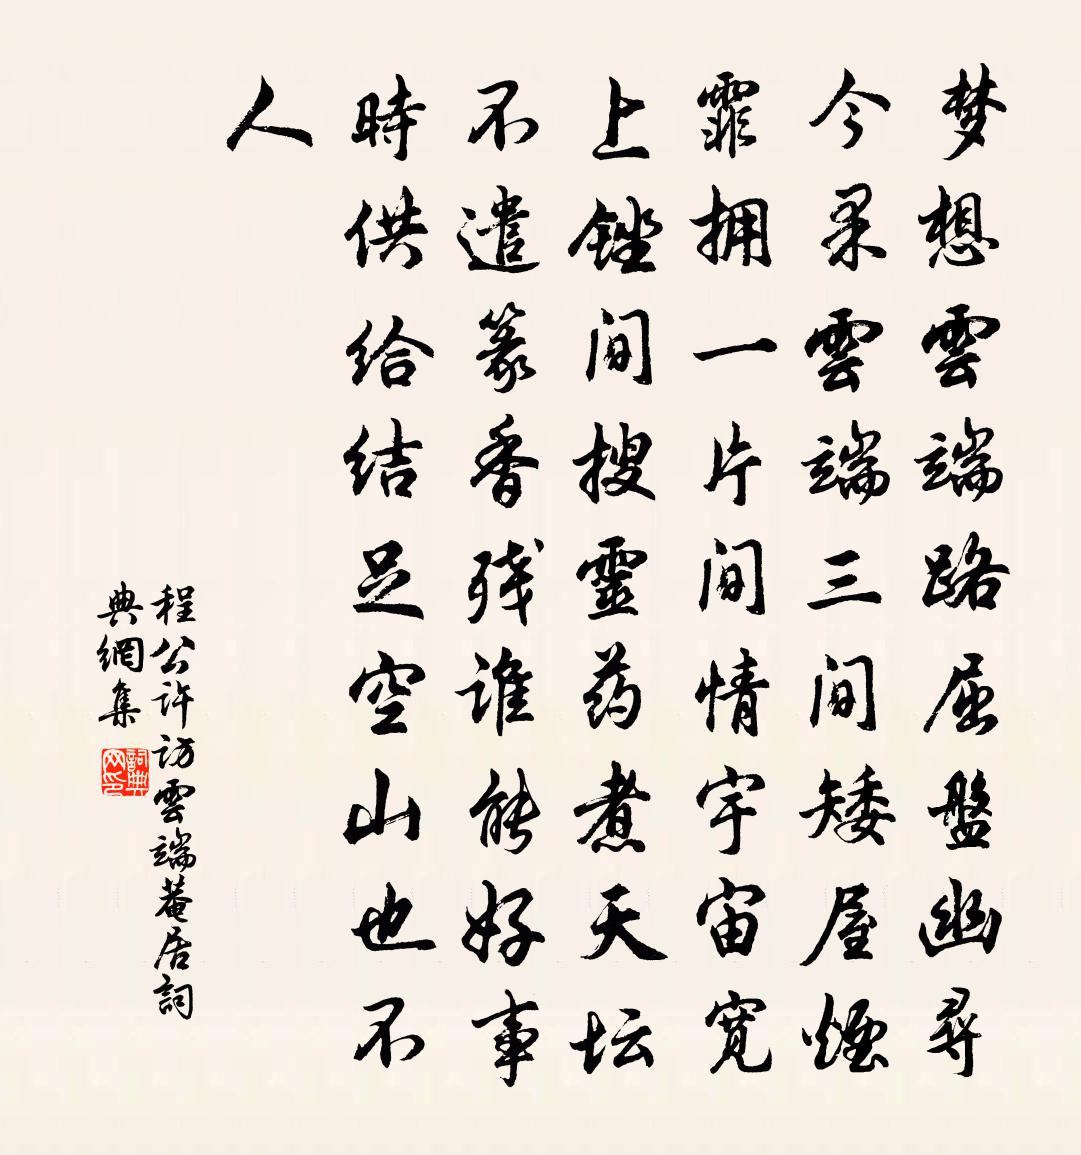 梦想雲端路屈盤幽尋
今果雲端三间矮屋煙
霏拥一片间情宇宙宽
上銼间搜靈药煮天坛
不遣篆香残谁能好事
時供给结足空山也不
人
程公许访雲端菴居詞
典網集
詞典
网印